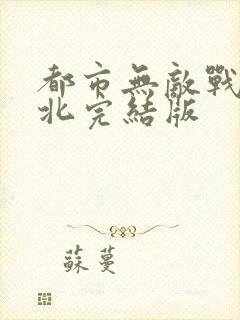 都市無敵戰
北完結版
蘇蔓